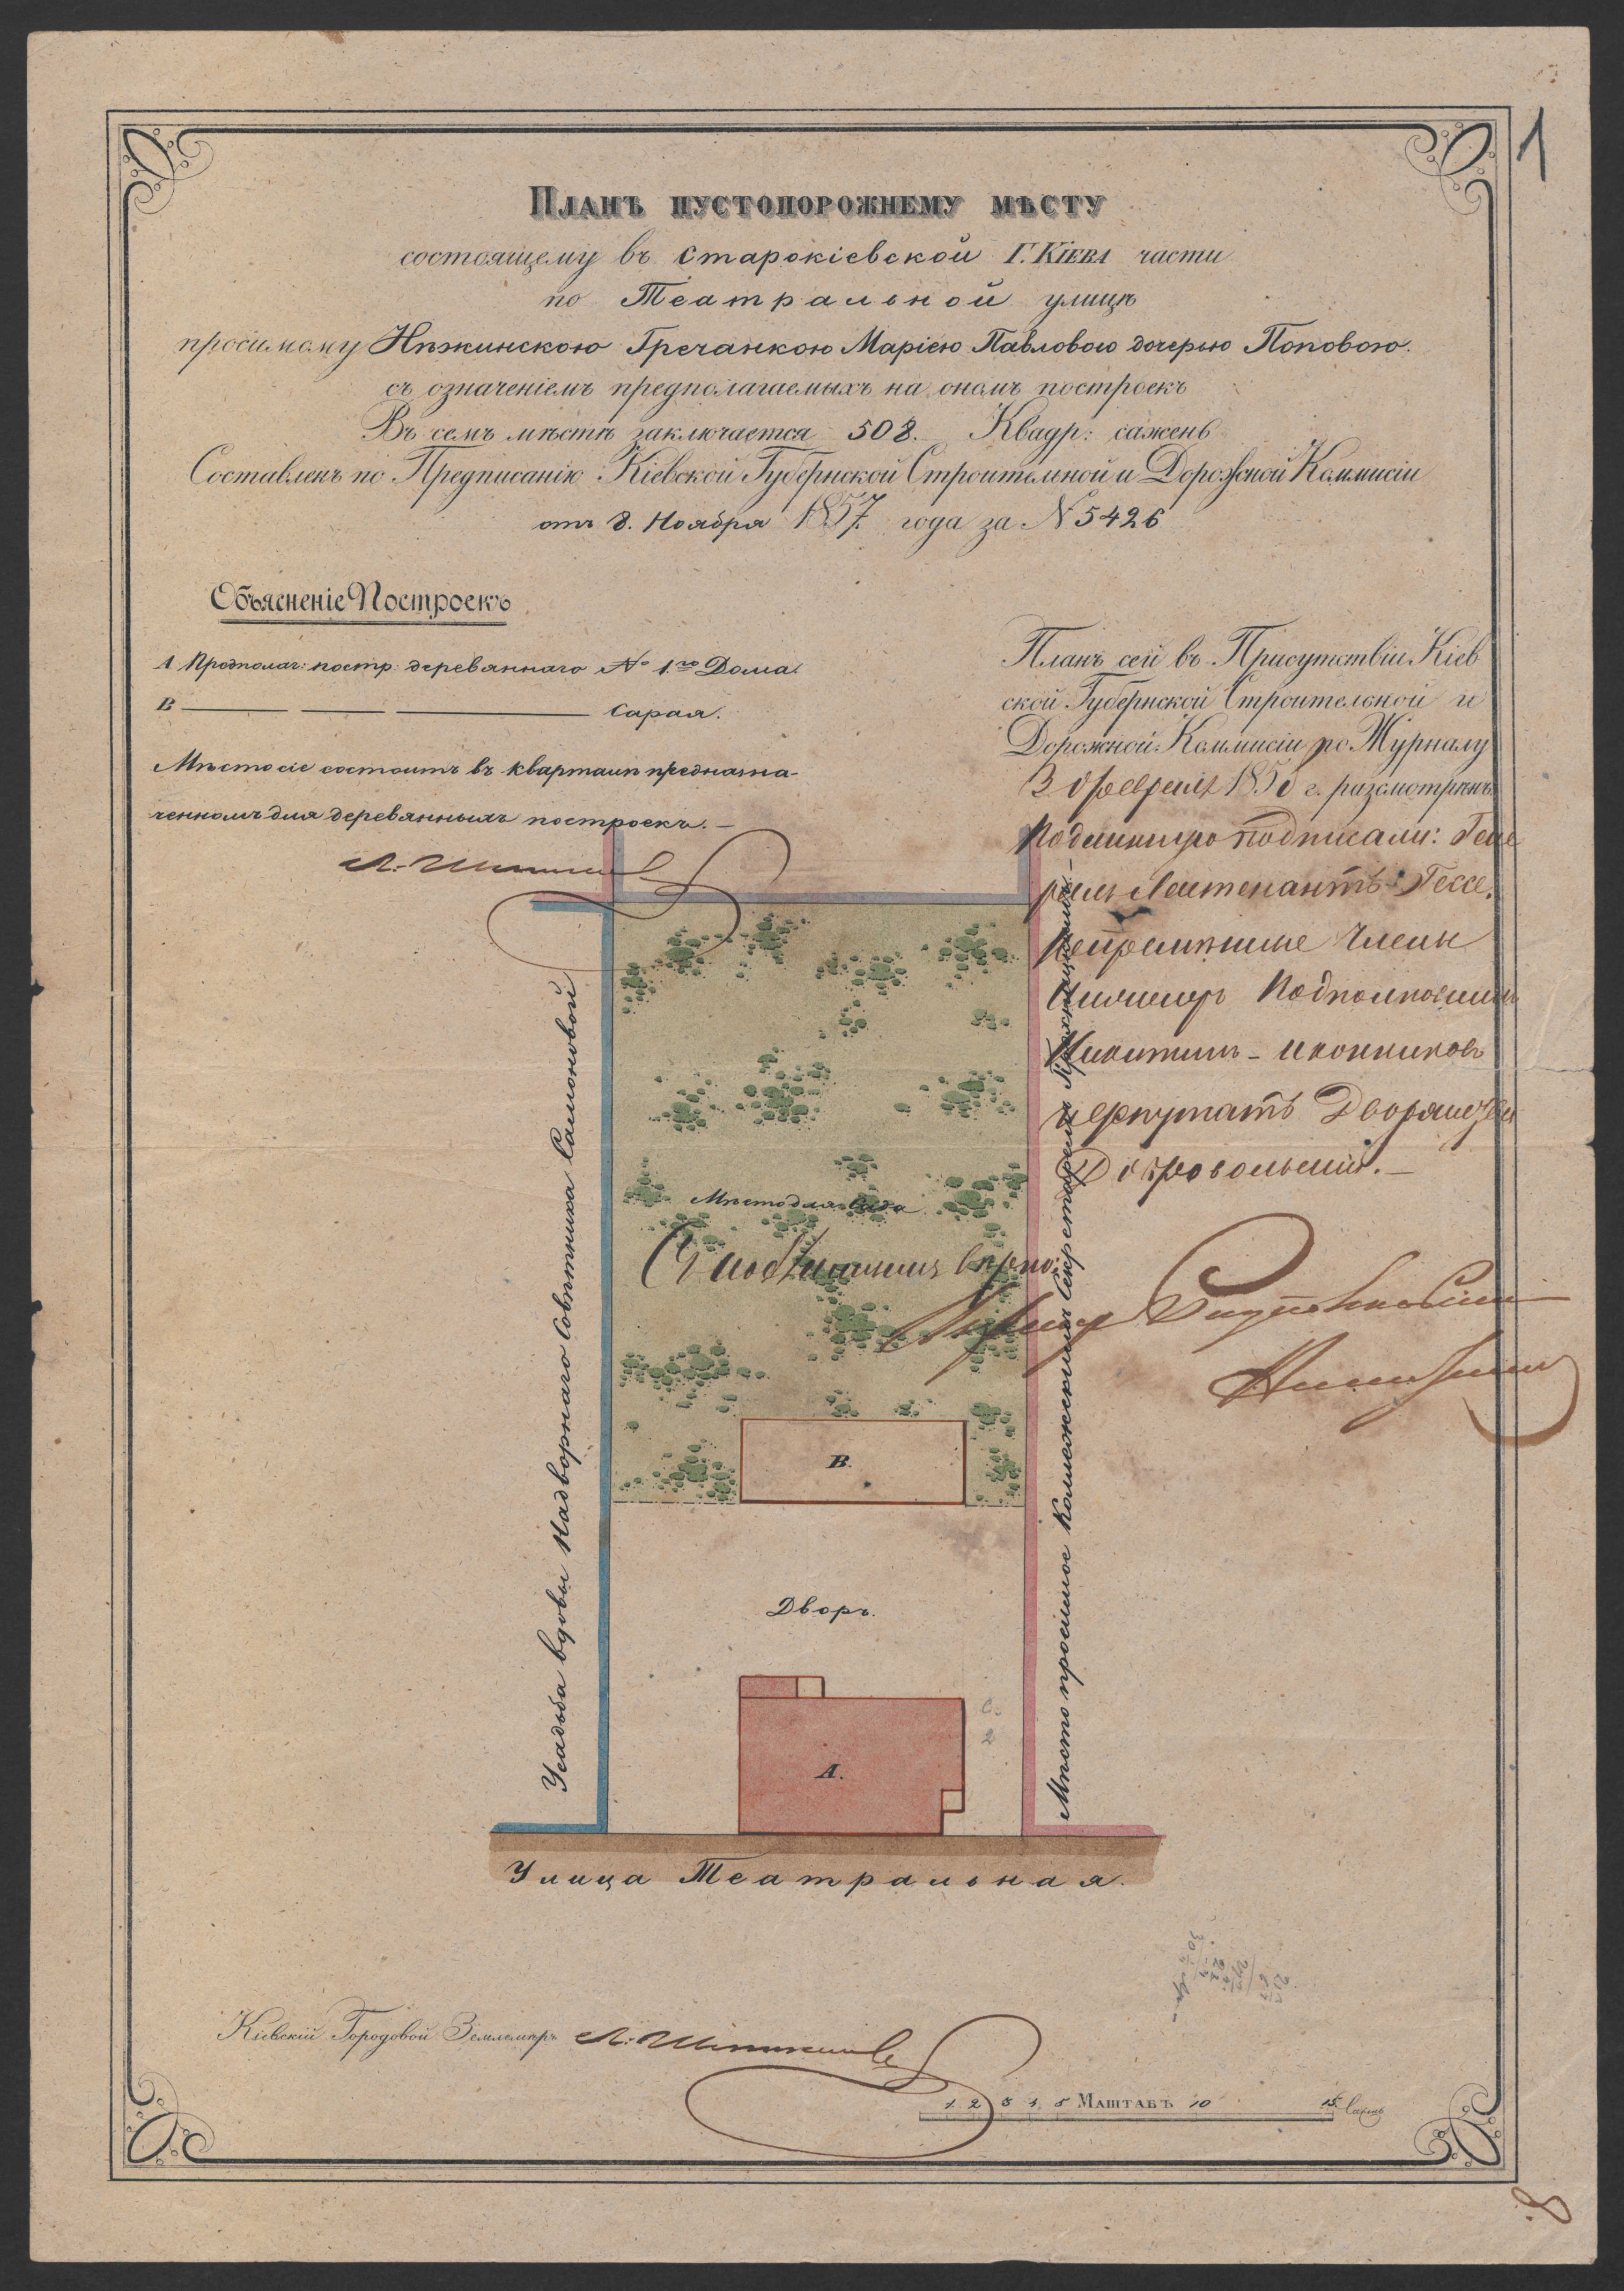 1
Планъ пустопорожнему мѣсту
состоящему въ Старокіевской Г. Кіева части
по Театральной улицѣ
просимому Нѣжинскою Гречанкою Маріею Павловою дочерью Поповою.
съ означеніемъ предполагаемыхъ на ономъ построекъ
Въ семъ мѣстѣ заключается 508. Квадр: сажень
Составленъ по Предписанію Кіевской Губернской Строительной и Дорожной Коммисіи
отъ 8. Ноября 1857. года за № 5426
Объясненіе Построекъ
А Предполаг: постр: деревяннаго № 1.го Дома.
В Сарая.
Мѣсто сіе состоитъ въ кварталѣ предназна-
ченномъ для деревянныхъ построекъ. —
Планъ сей въ Присутствіи Кіев
ской Губернской Строительной и
Дорожной Коммисіи по Журналу
3 февраля 185 г. разсмотрѣнъ
Подлинную подписали: Гене
ралъ Лейтенантъ Гессе.
Непремѣнные Члены
Инженеръ Подполковникъ
Никитинъ - Иконниковъ
и Депутатъ Дворянства
Добровольскій. —
Усадьба вдовы Надворнаго Совѣтника Самоновой
Мѣсто просимое Коллежскимъ Секретаремъ
Мѣсто для Сада
Съ подлиннымъ вѣрно:
В.
Дворъ.
С.
2
А.
Улица Театральная.
Кіевскій Городовой Землемѣръ
1 2 3 4 5 Маштабъ 10 15 Сажень